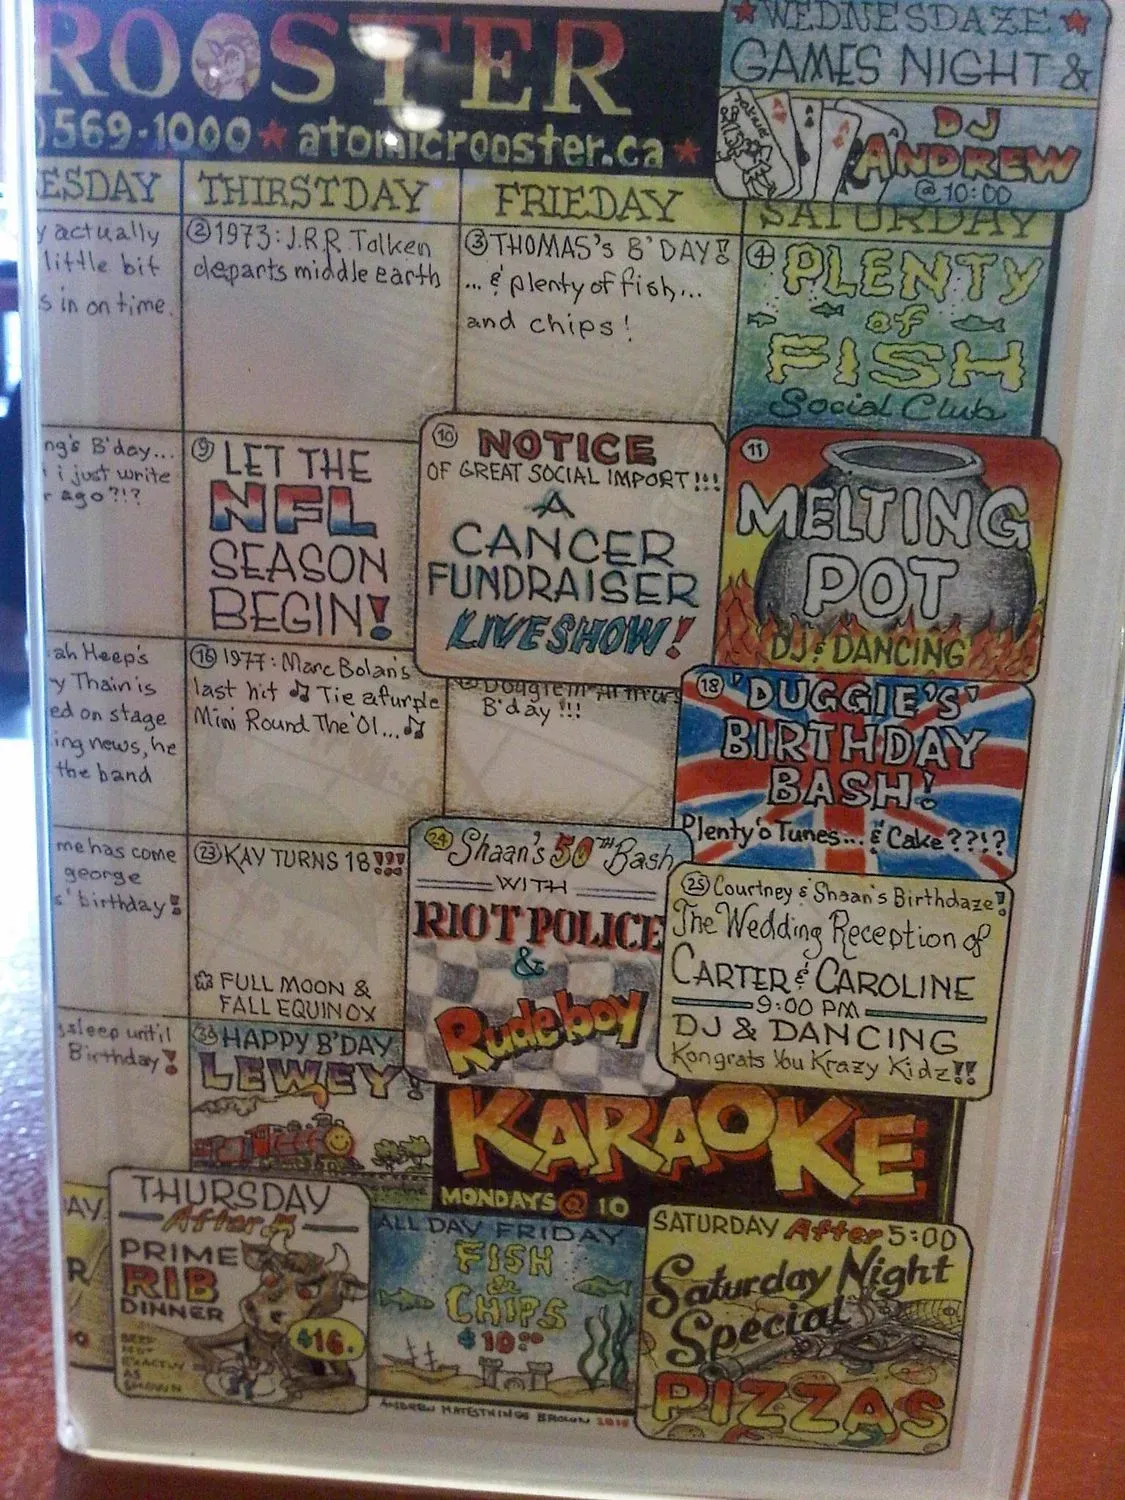 ROOSTER
)569-1000 ★ atomicrooster.ca ★
★ WEDNESDAZE ★
GAMES NIGHT &
DJ
ANDREW
@ 10:00
ESDAY
THIRSTDAY
FRIEDAY
SATURDAY
y actually
little bit
s in on time.
2 1973: J.R.R. Tolken
departs middle earth
3 THOMAS's B'DAY!!
... & plenty of fish...
and chips!
4 PLENTY
of
FISH
Social Club
ng's B'day...
i just write
r ago?!?
9 LET THE
NFL
SEASON
BEGIN!
10 NOTICE
OF GREAT SOCIAL IMPORT!!!
A
CANCER
FUNDRAISER
LIVE SHOW!
11
MELTING
POT
DJ & DANCING
ah Heep's
y Thain is
ed on stage
ing news, he
the band
16 1977: Marc Bolan's
last hit ♫ Tie a furple
Mini Round The 'Ol... ♫
B'day !!!
18 'DUGGIE'S'
BIRTHDAY
BASH!
Plenty'o Tunes... & Cake??!?
me has come
george
s' birthday!!
23 KAY TURNS 18!!!
FULL MOON &
FALL EQUINOX
24 Shaan's 50TH Bash
WITH
RIOT POLICE
&
Rudeboy
25 Courtney & Shaan's Birthdaze!
The Wedding Reception of
CARTER & CAROLINE
9:00 PM
DJ & DANCING
Kongrats You Krazy Kidz!!
asleep until
Birthday!
30 HAPPY B'DAY
LEWEY!
KARAOKE
MONDAYS @ 10
AY
R
THURSDAY
After 5
PRIME
RIB
DINNER
$16.
BEEF
NOT
EXACTLY
AS
SHOWN
ALL DAY FRIDAY
FISH
&
CHIPS
$10.00
SATURDAY After 5:00
Saturday Night
Special
PIZZAS